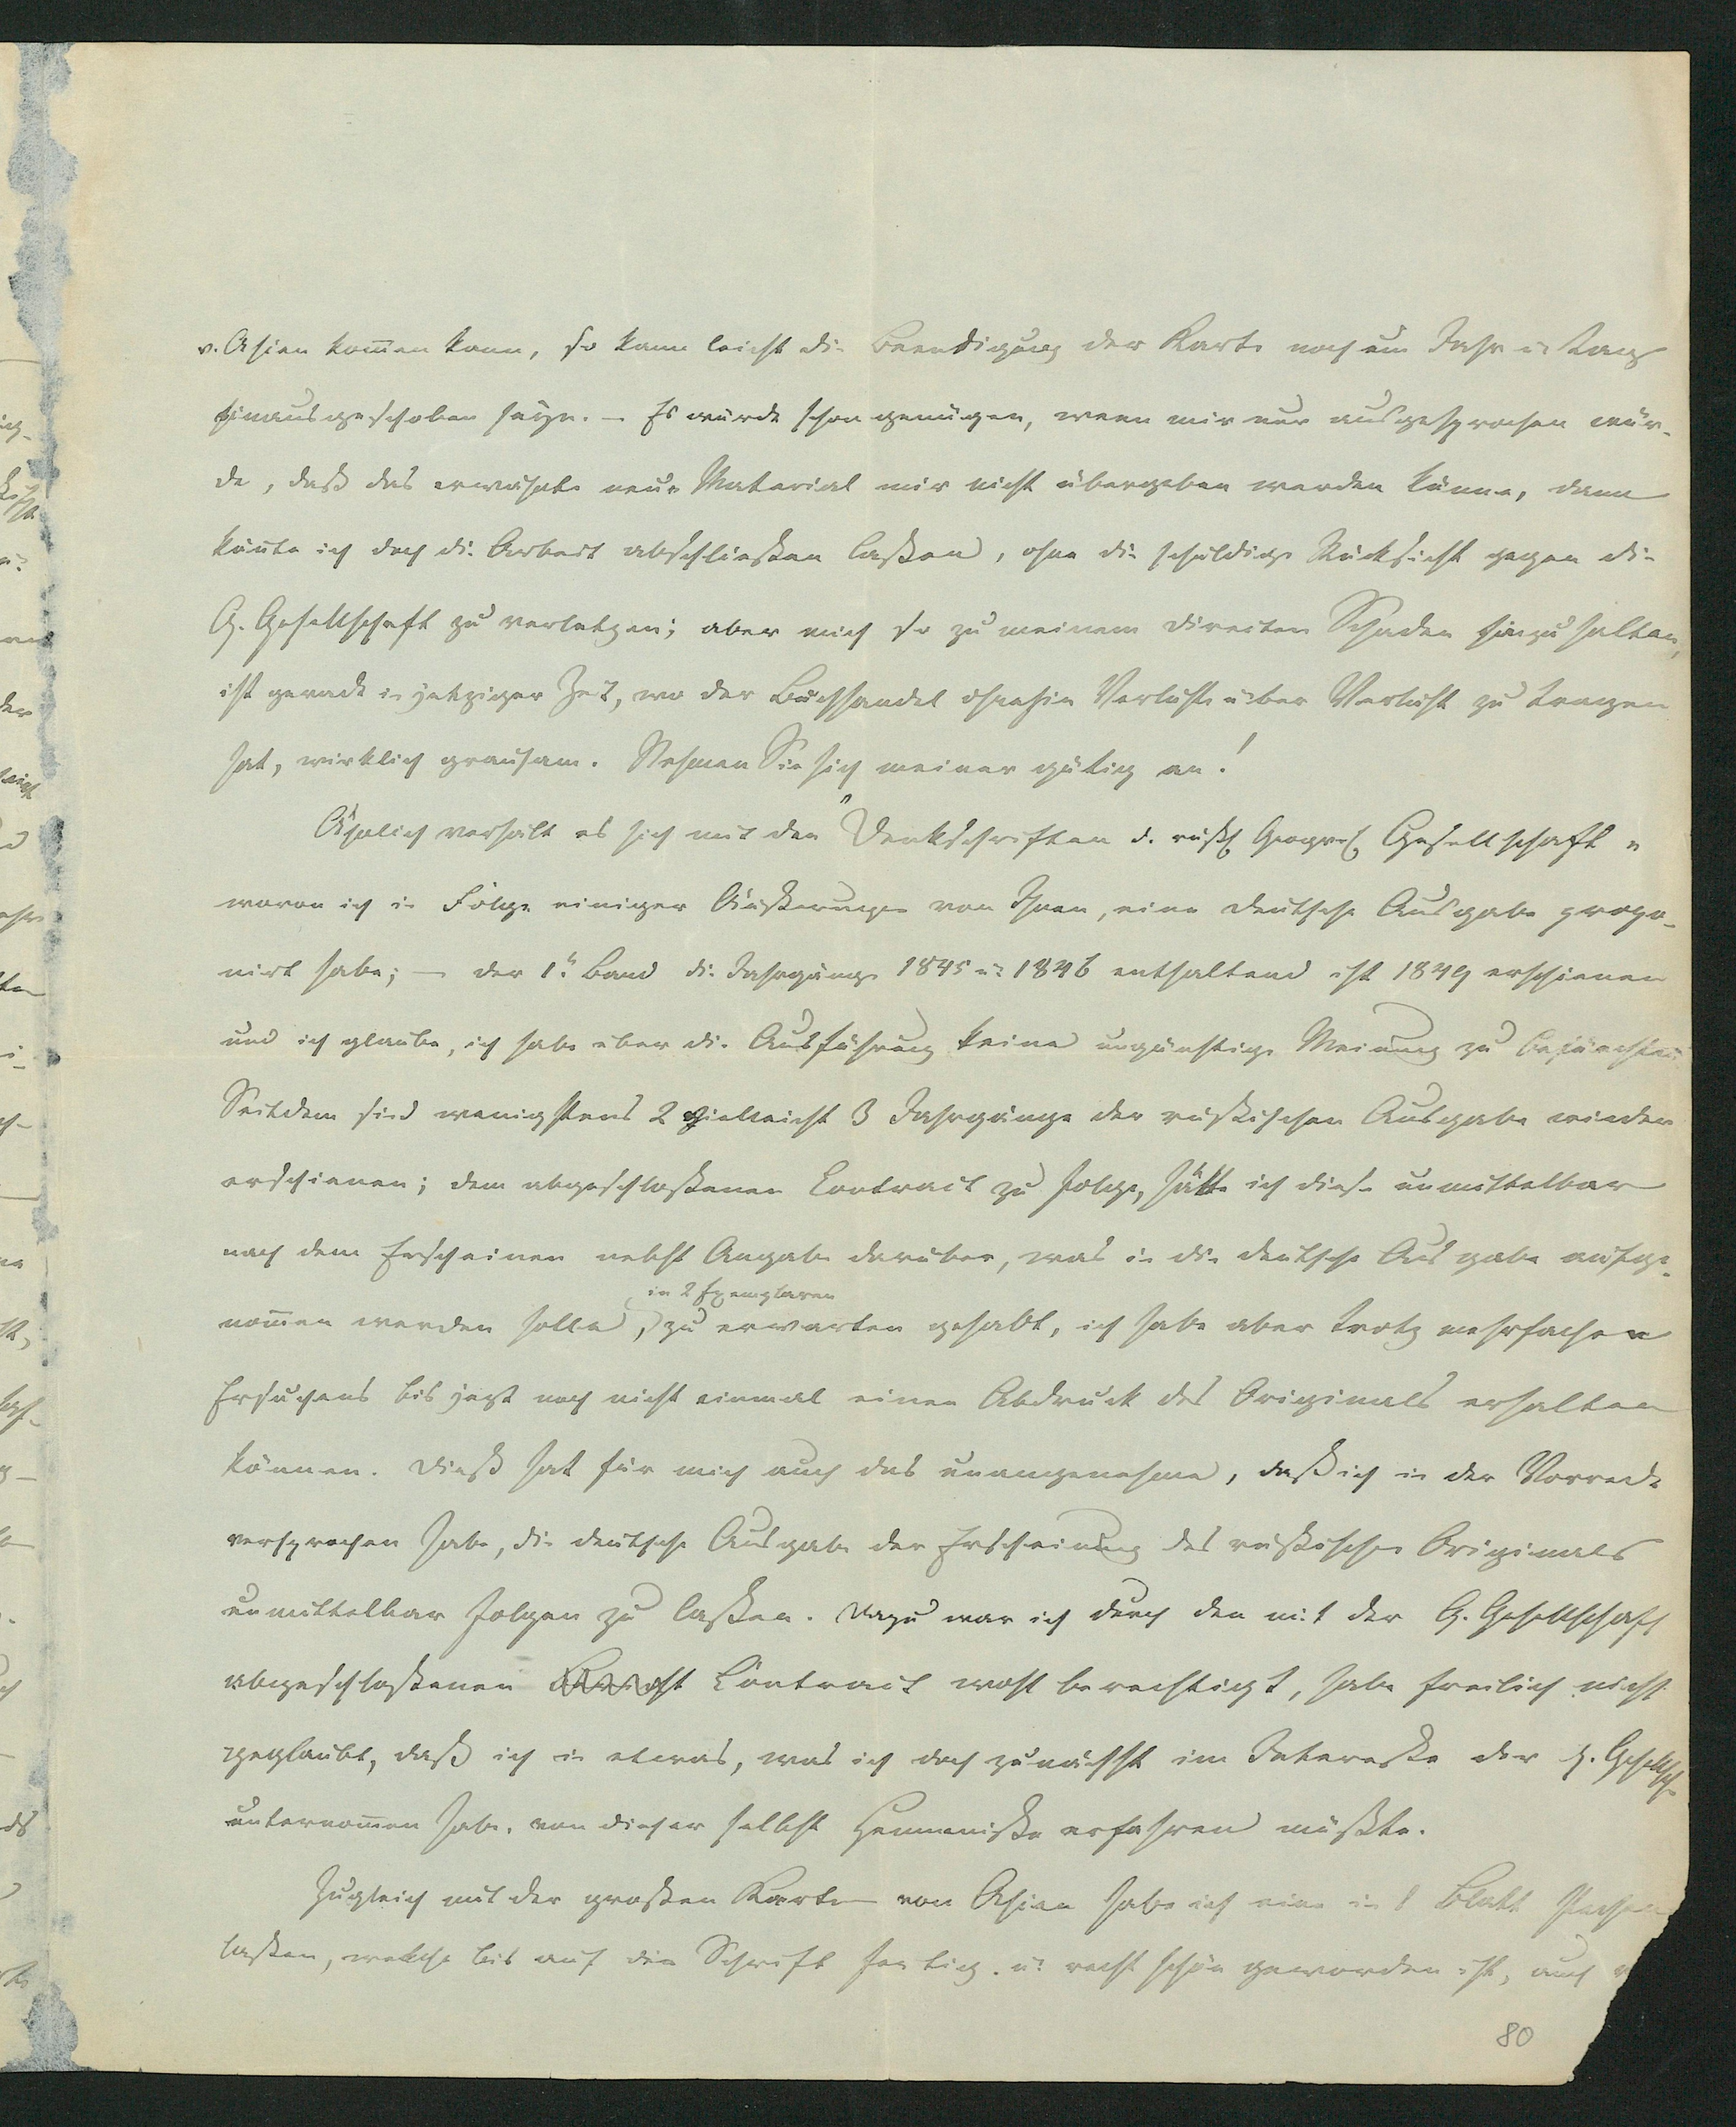 v. Asien kom̅en kann, so kann leicht die Beendigung der Karte noch um Jahr u: Tag
hinausgeschoben seyn. – Es würde schon genügen, wenn mir nur ausgesprochen wür-
de, daß das erwähnte neue Material mir nicht übergeben werden könne, dann
kön̅te ich doch die Arbeit abschließen laßen, ohne die schuldige Rücksicht gegen die
G. Gesellschaft zu verletzen; aber mich so zu meinem directen Schaden hinzuhalten,
ist gerade in jetziger Zeit, wo der Buchhandel ohnehin Verluste über Verlust zu tragen
hat, wirklich grausam. Nehmen Sie sich meiner gütig an!
Ähnlich verhält es sich mit den "Denkschriften d. russ. Geogr. Gesellschaft"
wovon ich in Folge einiger Äußerungen von Ihnen, eine deutsche Ausgabe propo-
nirt habe; – der 1e. Band die Jahrgänge 1845 u: 1846 enthaltend ist 1849 erschienen
und ich glaube, ich habe über die Ausführung keine ungünstige Meinung zu befürchten.
Seitdem sind wenigstens 2 vielleicht 3 Jahrgänge der rußischen Ausgabe wieder
erschienen; dem abgeschloßenen Contract zu folge, hätte ich diese unmittelbar
nach dem Erscheinen nebst Angabe darüber, was in die deutsche Ausgabe aufge-
in 2 Exemplaren
nom̅en werden solle, zu erwarten gehabt, ich habe aber trotz mehrfachen
Ersuchens bis jetzt noch nicht einmal einen Abdruck des Originals erhalten
können. Dieß hat für mich auch das unangenehme, daß ich in der Vorrede
versprochen habe, die deutsche Ausgabe der Erscheinung des rußischen Originals
unmittelbar folgen zu laßen. Dazu war ich durch den mit der G. Gesellschaft
abgeschloßenen Contract wohl berechtigt, habe freilich nicht
geglaubt, daß ich in etwas, was ich doch zunächst im Intereße der G. Gesellsch.
unternom̅en habe, von dieser selbst Hemmniße erfahren müßte.
Zugleich mit der großen Karte von Asien habe ich eine in 1 Blatt stechen
laßen, welche bis auf die Schrift fertig u: recht schön geworden ist, auch
80